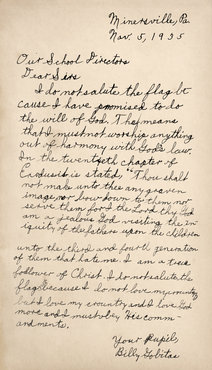 Minersville, Pa.
Nov. 5, 1935
Our School Directors
Dear Sirs
I do not salute the flag be
cause I have promised to do
the will of God. That means
that I must not worship anything
out of harmony with God's law.
In the twentieth chapter of
Exodus it is stated, "Thou shalt
not make unto thee any graven
image, nor bow down to them nor
serve them for I the Lord thy God
am a jealous God visiting the in
iquity of the fathers upon the children
unto the third and fourth generation
of them that hate me. I am a true
follower of Christ. I do not salute the
flag because I do not love my country
but I love my country and I love God
more and I must obey His comm-
andments.
Your Pupil,
Billy Gobitas